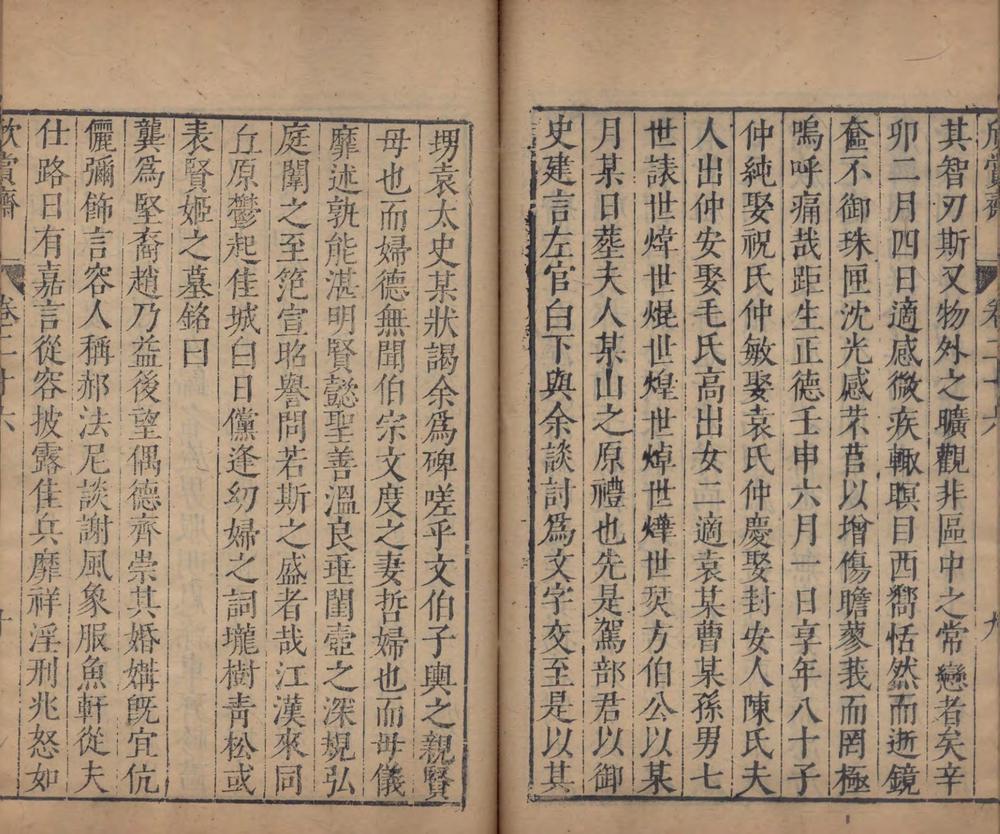 欣賞齋 卷二十六 九
其智刃斯又物外之曠觀非區中之常戀者矣辛
卯二月四日適感微疾輙瞑目西嚮恬然而逝鏡
奩不御珠匣沈光感芣苢以增傷瞻蓼莪而罔極
嗚呼痛哉距生正德壬申六月一日享年八十子
仲純娶祝氏仲敏娶袁氏仲慶娶封安人陳氏夫
人出仲安娶毛氏高出女二適袁某曹某孫男七
世諘世煒世焜世煌世焯世燁世焈方伯公以某
月某日塟夫人某山之原禮也先是駕部君以御
史建言左官白下與余談討爲文字交至是以其
甥袁太史某狀謁余爲碑嗟乎文伯子輿之親賢
母也而婦德無聞伯宗文度之妻哲婦也而毋儀
靡述孰能湛明賢懿聖善溫良亜閨壼之深規弘
庭闈之至范宣昭譽問若斯之盛者哉江漢來同
丘原鬱起佳城白日儻逢幼婦之詞壠樹靑松或
表賢姬之墓銘曰
龔爲堅裔趙乃益後望偶德齊崇其婚媾旣宜伉
儷彌飾言容人稱郝法尼談謝風象服魚軒從夫
仕路日有嘉言從容披露佳兵靡祥淫刑兆怒如
欣賞齋 卷二十六 十